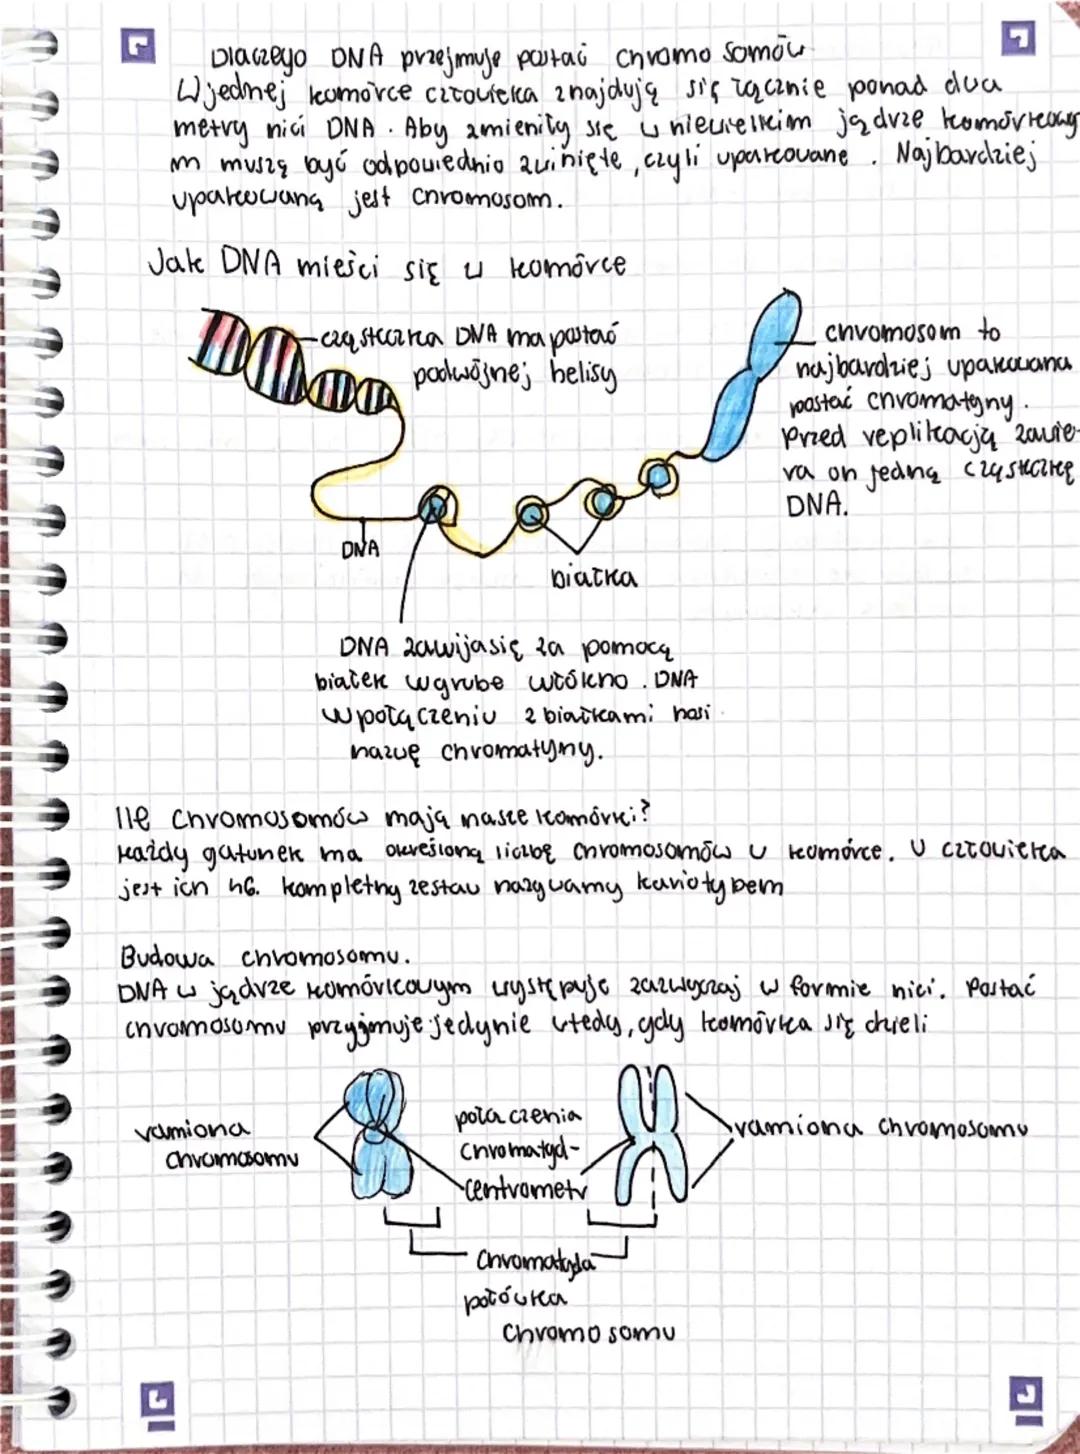 Dlaczego DNA przejmuje postać chromosomów
W jednej komórce człowieka znajdują się łącznie ponad dwa
metry nici DNA. Aby zmieniły się w niewielkim jądrze komórkowy
m muszą być odpowiednio zwinięte, czyli upakowane. Najbardziej
upakowaną jest chromosom.
Jak DNA mieści się w komórce
cząsteczka DNA ma postać
podwójnej helisy
chromosom to
najbardziej upakowana
postać chromatyny.
Przed replikacją zawie-
ra on jedną cząsteczkę
DNA.
DNA
białka
DNA zawija się za pomocą
białek w grube włókno. DNA
w połączeniu z białkami nosi
nazwę chromatyny.
Ile chromosomów mają nasze komórki?
Każdy gatunek ma określoną liczbę chromosomów w komórce. U człowieka
jest ich 46. kompletny zestaw nazywamy kariotybem
Budowa chromosomu.
DNA w jądrze komórkowym występuje zazwyczaj w formie nici. Postać
chromosomu przyjmuje jedynie wtedy, gdy komórka się dzieli
ramiona
chromosomu
połaczenia
chromatyd-
centrometr
ramiona chromosomu
Chromatyda
połówka
chromosomu